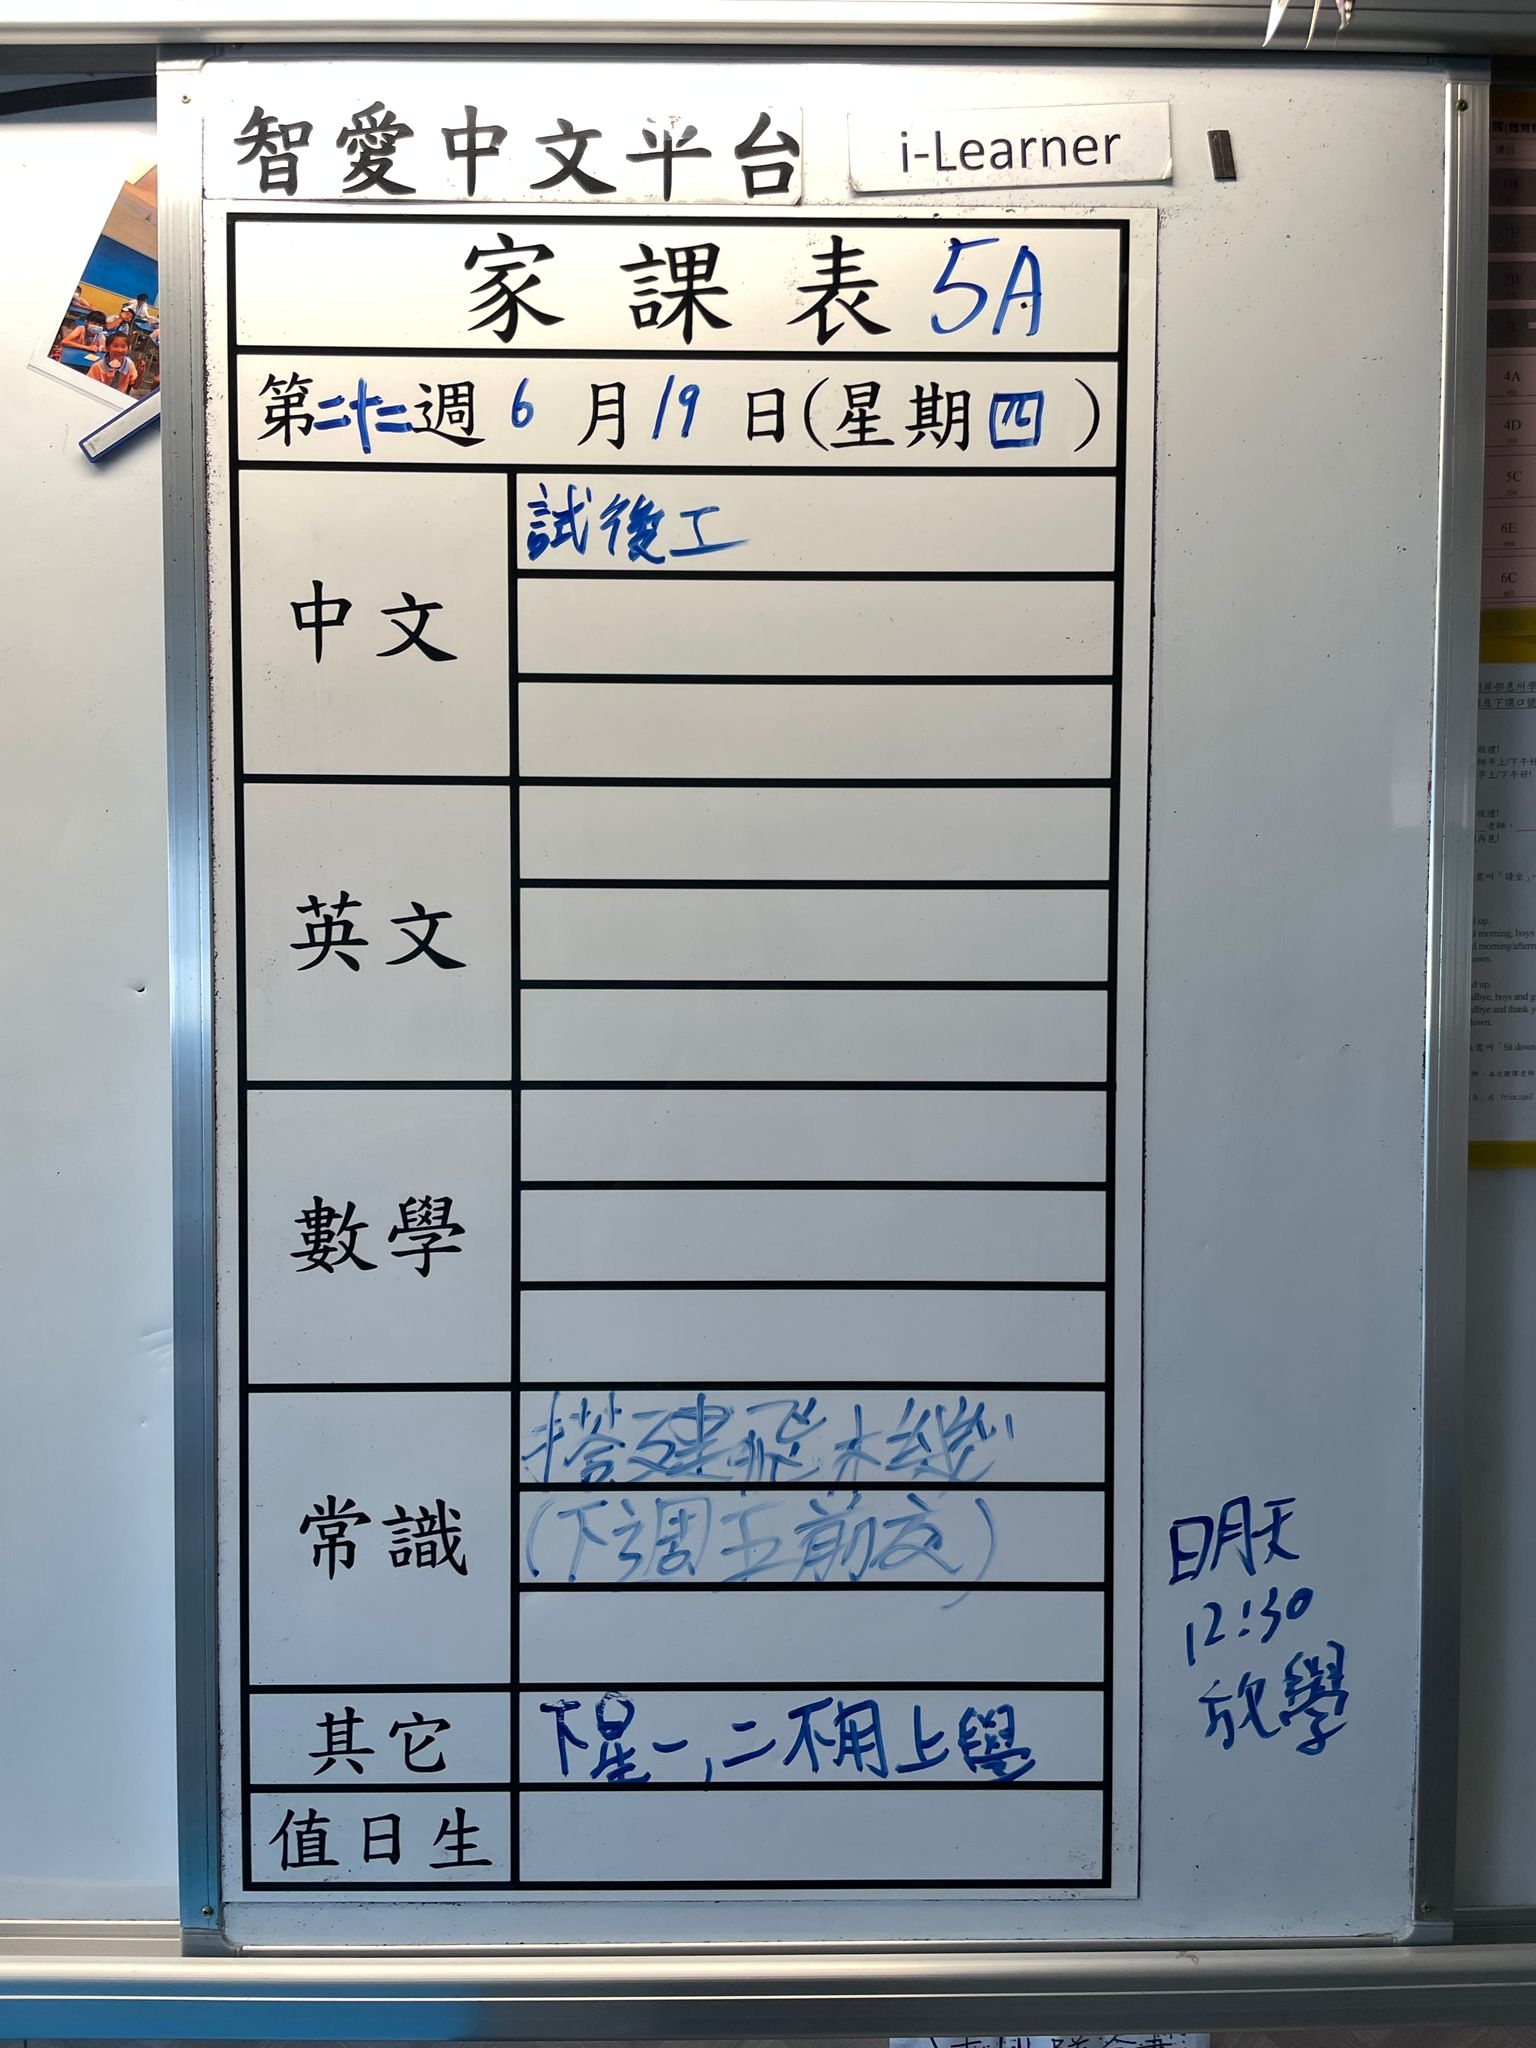 智愛中文平台 i-Learner
家課表 5A
第二十二週 6月19日(星期四)
中文 試後工
英文
數學
常識 搭建飛機
(下週五前交)
其它 下星一,二不用上學
值日生
明天
12:30
放學
4A
4D
5C
6E
6C